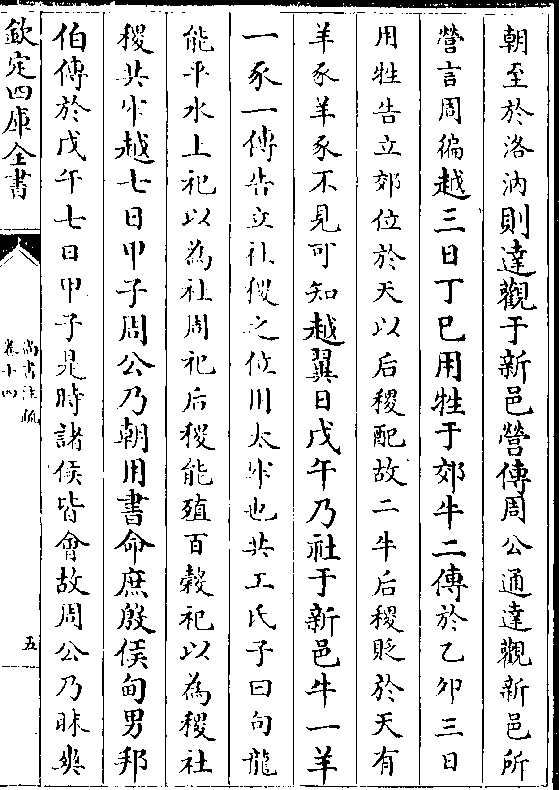 朝至於洛汭則達觀于新邑營傳周公通達觀新邑所
營言周徧越三日丁巳用牲于郊牛二傳於乙卯三日
用牲告立郊位於天以后稷配故二牛后稷貶於天有
羊豕羊豕不見可知越翼日戊午乃社于新邑牛一羊
一豕一傳告立社稷之位用太牢也共工氏子曰句龍
能平水土祀以為社周祀后稷能殖百穀祀以為稷社
稷共牢越七日甲子周公乃朝用書命庶殷侯甸男邦
伯傳於戊午七日甲子是時諸侯皆會故周公乃昧爽
欽定四庫全書
尚書注疏
卷十四
五